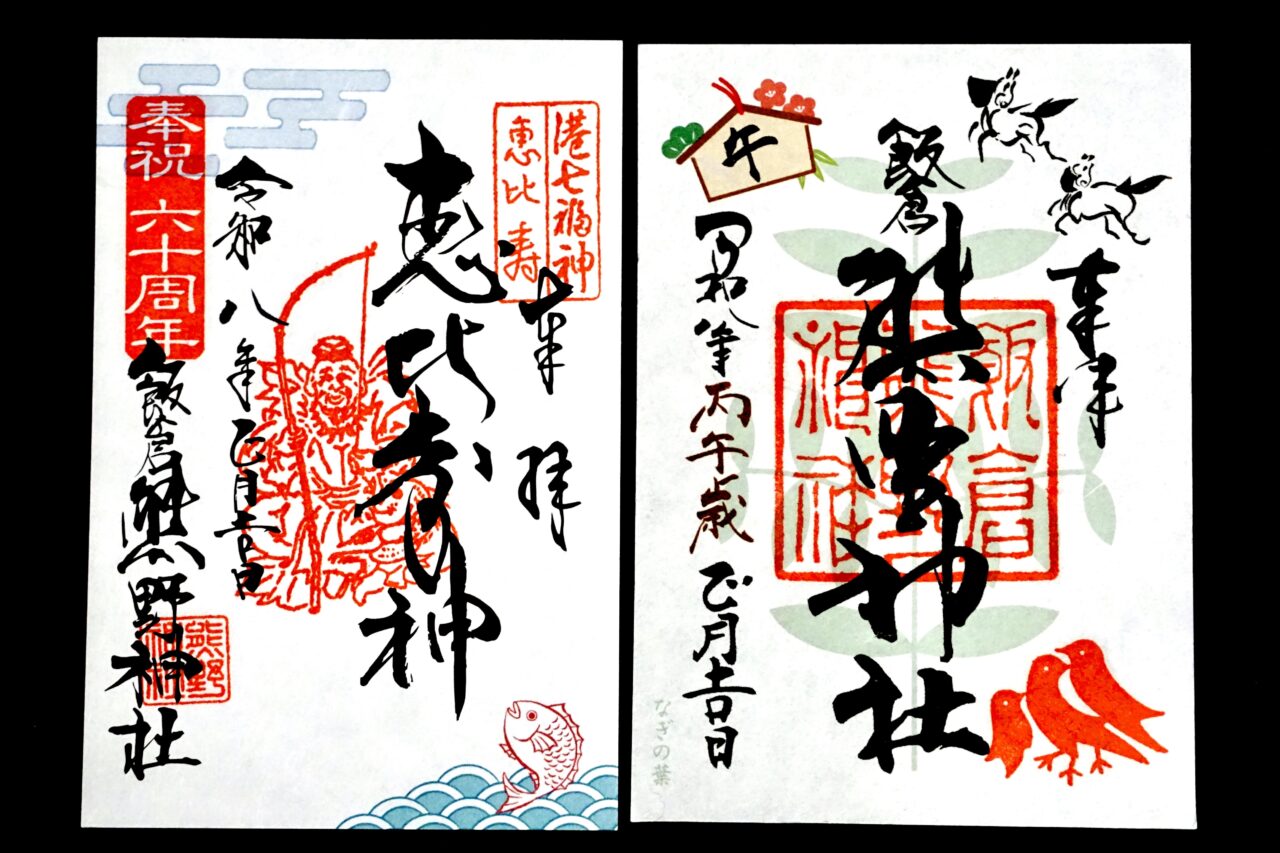 奉拝
港七福神
恵比寿
恵比寿神
令和八年正月吉日
奉祝 六十周年
飯倉熊野神社
熊野
奉拝
飯倉
熊野神社
飯倉
熊野
神社
午
令和八年丙午歳正月吉日
なぎの葉